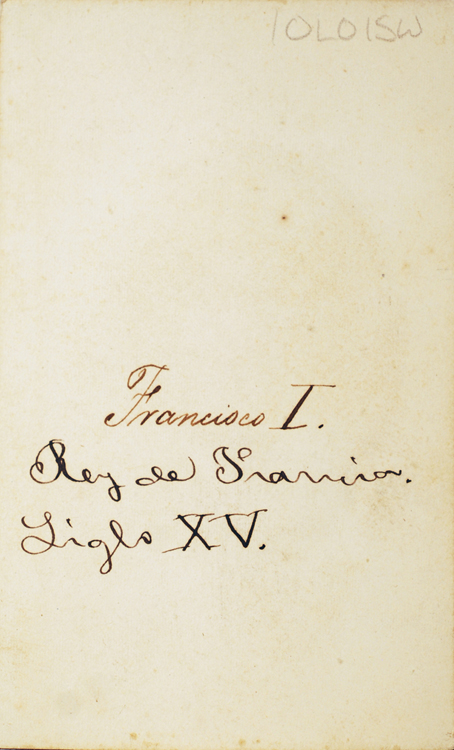 10L01SW
Francisco I.
Rey de Francia.
Siglo XV.